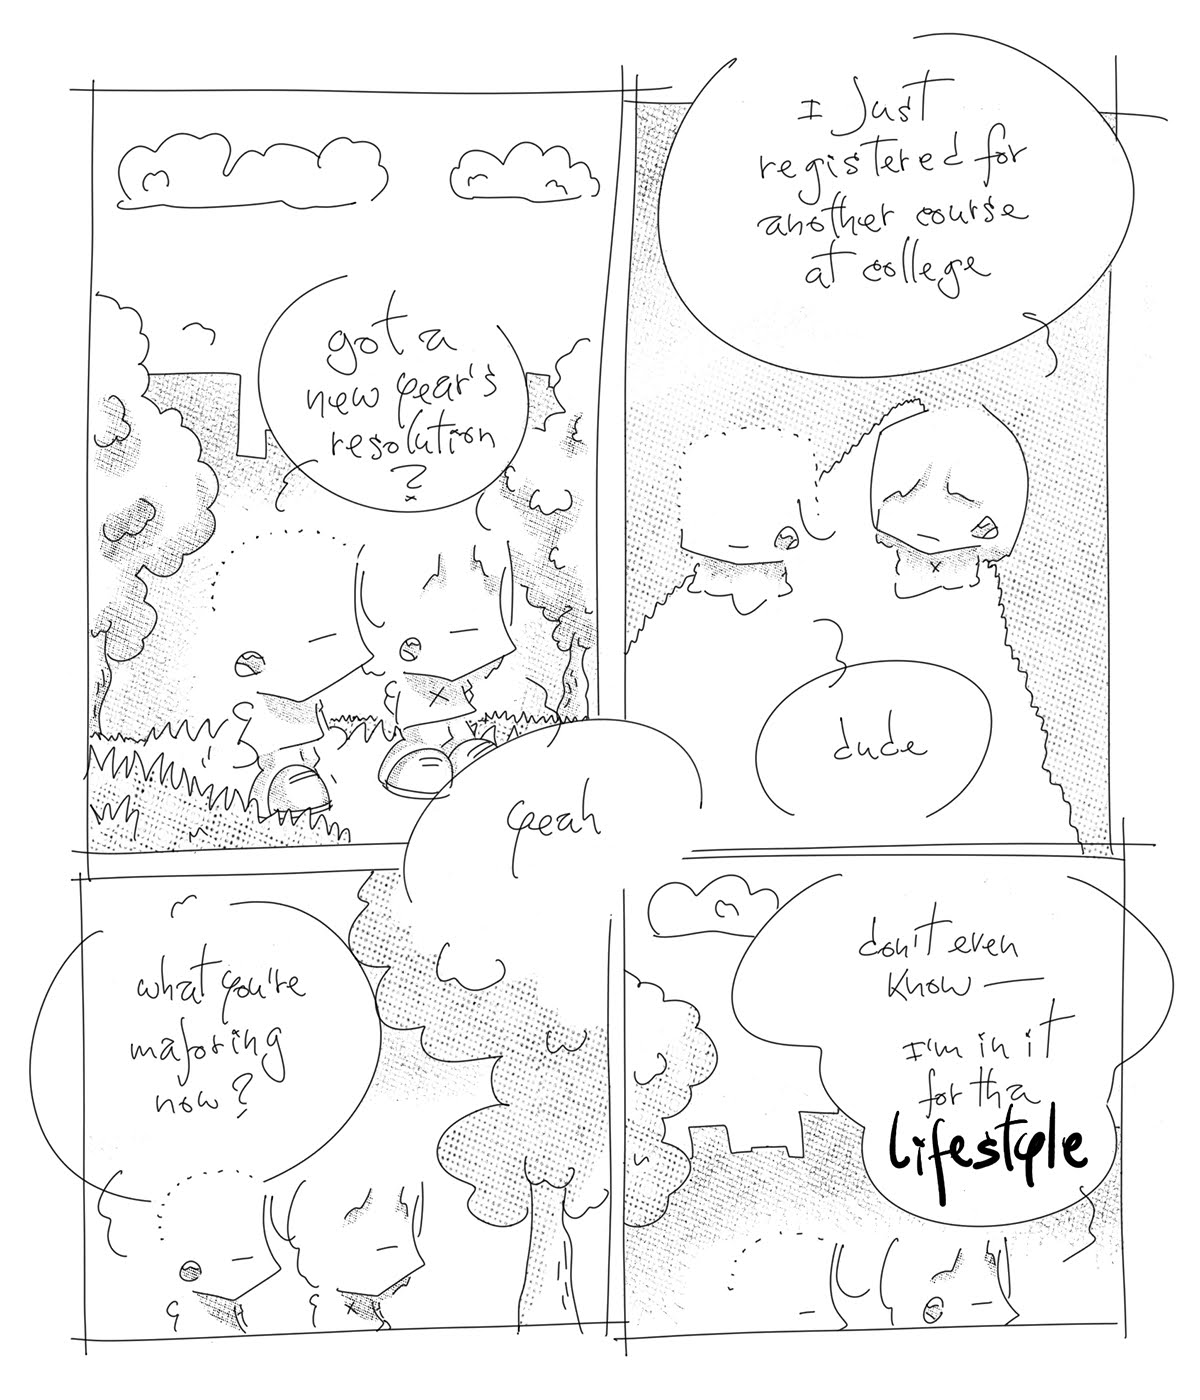 got a
new year's
resolution
?
yeah
I just
registered for
another course
at college
dude
what you're
majoring
now?
don't even
know —
I'm in it
for tha
lifestyle